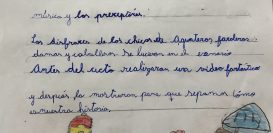 música y los preceptores.
Los disfraces de los chicos de aguateros, faroleros
damas y caballeros se lucieron en el escenario
Antes del acto realizaron un video fantástico
y después lo mostraron para que sepamos cómo
es nuestra historia